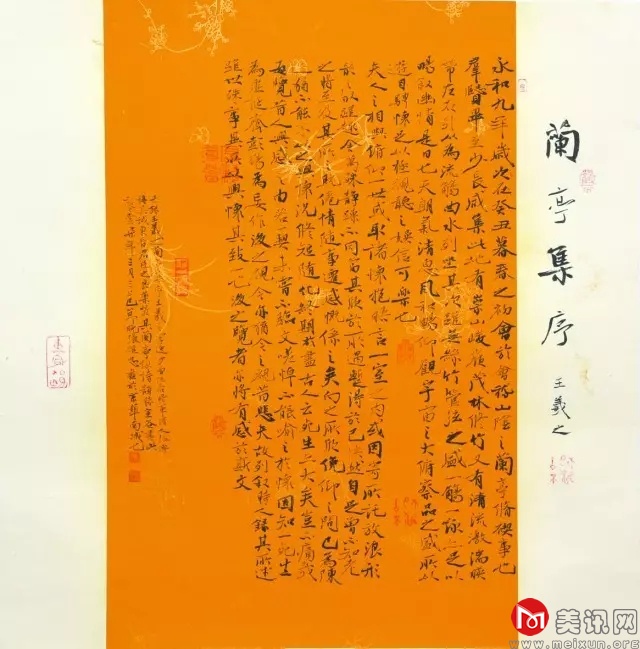 蘭亭集序 王羲之
永和九年歲次在癸丑暮春之初會於會稽山陰之蘭亭脩禊事也
羣賢畢至少長咸集此地有崇山峻嶺茂林修竹又有清流激湍映
帶左右引以為流觴曲水列坐其次雖無絲竹管弦之盛一觴一詠亦足以
暢敘幽情是日也天朗氣清惠風和暢仰觀宇宙之大俯察品之盛所以
遊目騁懷足以極視聽之娛信可樂也
夫人之相與俯仰一世或取諸懷抱晤言一室之內或因寄所託放浪形
骸之外雖趣舍萬殊靜躁不同當其欣於所遇暫得於己快然自足曾不知老
之將至及其所之既倦情隨事遷感慨係之矣向之所欣俛仰之間已為陳
迹猶不能不以之興懷況修短隨化終期於盡古人云死生亦大矣豈不痛哉
每覽昔人興感之由若合一契未嘗不臨文嗟悼不能喻之於懷固知一死生
為虛誕齊彭殤為妄作後之視今亦猶今之視昔悲夫故列敘時人錄其所述
雖世殊事異所以興懷其致一也後之覽者亦將有感於斯文
美讯网
www.meixun.org